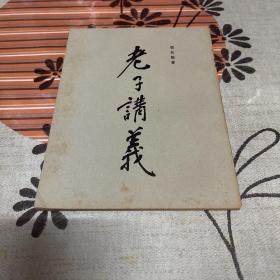 老子講義